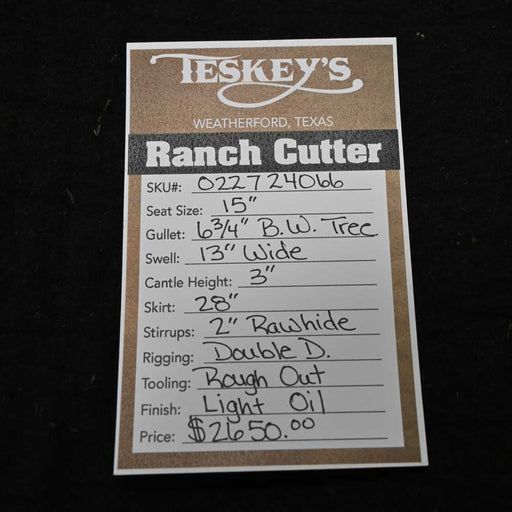 TESKEY'S
WEATHERFORD, TEXAS
Ranch Cutter
SKU#: 0227724066
Seat Size: 15"
Gullet: 6 3/4" B.W. Tree
Swell: 13" Wide
Cantle Height: 3"
Skirt: 28"
Stirrups: 2" Rawhide
Rigging: Double D.
Tooling: Rough Out
Finish: Light Oil
Price: $2650.00